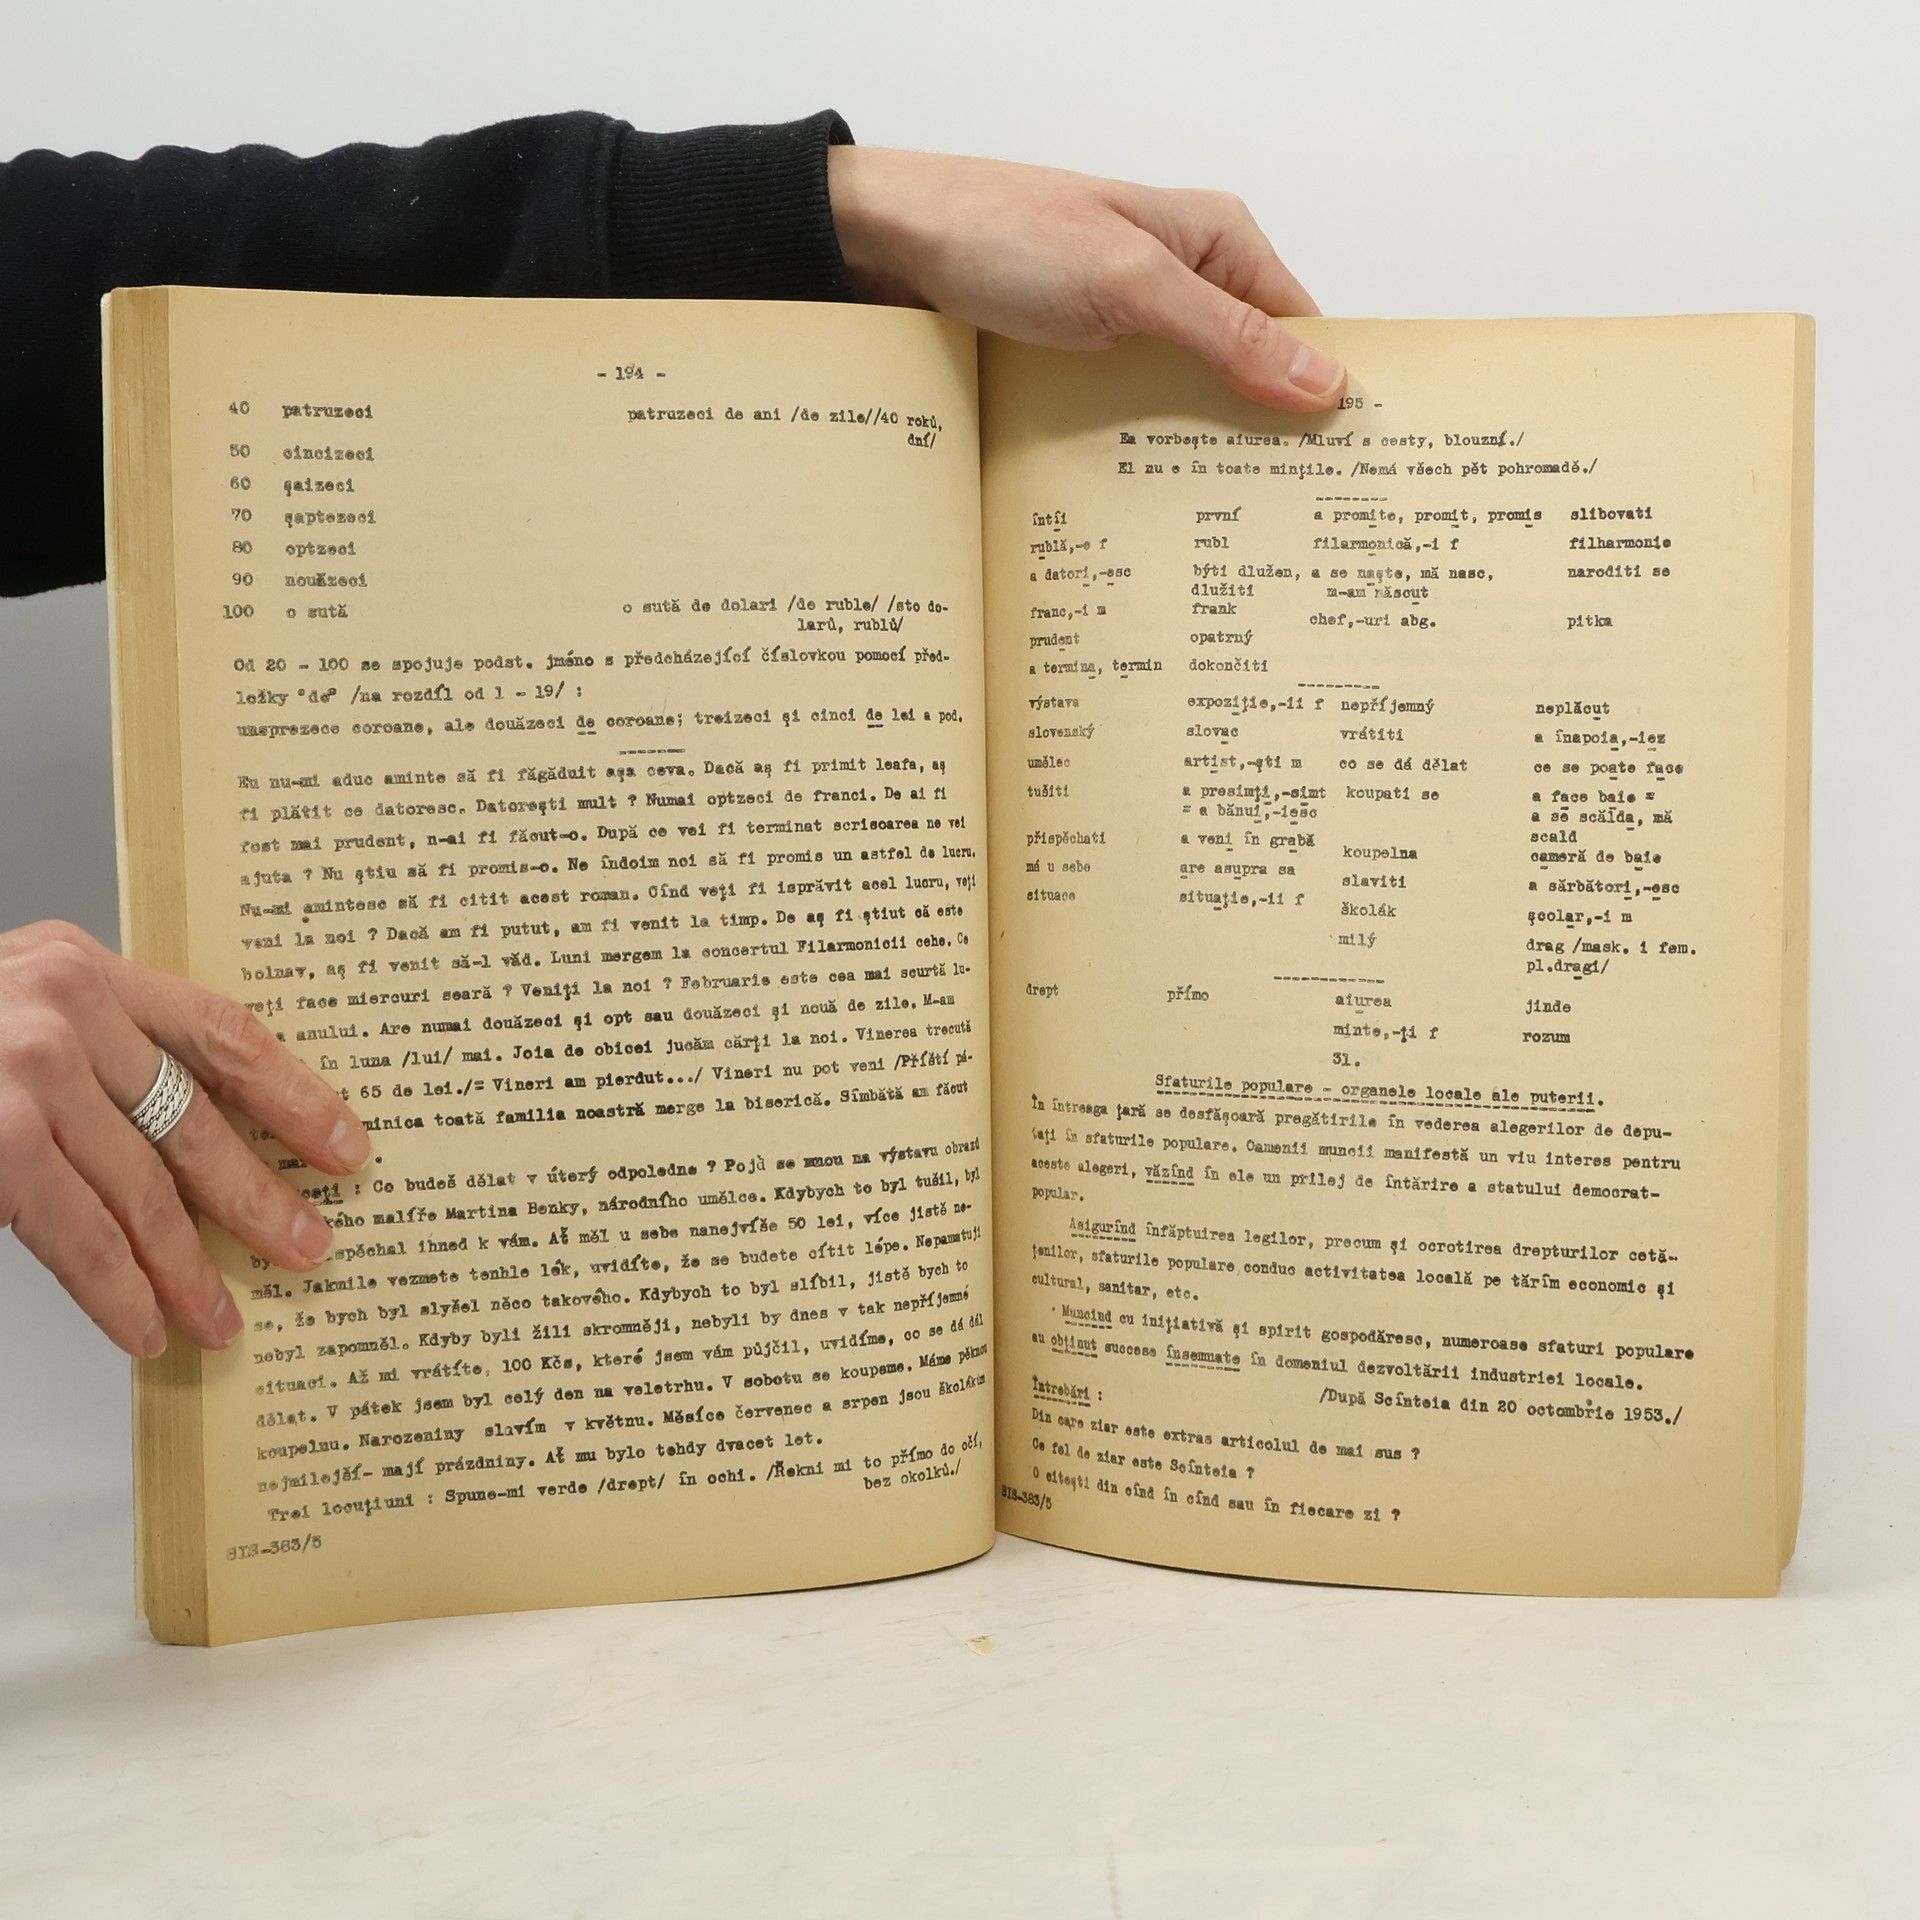 - 194 -
40 patruzeci patruzeci de ani /de zile//40 roků,
dní/
50 cincizeci
60 şaizeci
70 şaptezeci
80 optzeci
90 nouăzeci
100 o sută o sută de dolari /de ruble/ /sto do-
larů, rublů/
Od 20 - 100 se spojuje podst. jméno s předcházející číslovkou pomocí před-
ložky "de" /na rozdíl od 1 - 19/ :
unsprezece coroane, ale douăzeci de coroane; treizeci şi cinci de lei a pod.
Eu nu-mi aduc aminte să fi făgăduit aşa ceva. Dacă aş fi primit leafa, aş
fi plătit ce datoresc. Datoreşti mult ? Numai optzeci de franci. De ai fi
fost mai prudent, n-ai fi făcut-o. După ce vei fi terminat scrisoarea ne vei
ajuta ? Nu ştiu să fi promis-o. Ne îndoim noi să fi promis un astfel de lucru.
Nu-mi amintesc să fi citit acest roman. Cînd veţi fi isprăvit acel lucru, veţi
veni la noi ? Dacă am fi putut, am fi venit la timp. De aş fi ştiut că este
bolnav, aş fi venit să-l văd. Luni mergem la concertul Filarmonicii cehe. Ce
veţi face miercuri seară ? Veniţi la noi ? Februarie este cea mai scurtă lu-
anului. Are numai douăzeci şi opt sau douăzeci şi nouă de zile. M-am
în luna /lui/ mai. Joia de obicei jucăm cărţi la noi. Vinerea trecută
65 de lei./= Vineri am pierdut.../ Vineri nu pot veni /Příští pá-
minica toată familia noastră merge la biserică. Sîmbătă am făcut
.
: Co budeš dělat v úterý odpoledne ? Pojď se mnou na výstavu obrazů
kého malíře Martina Benky, národního umělce. Kdybych to byl tušil, byl
spěchal ihned k vám. Ať měl u sebe nanejvíše 50 lei, více jistě ne-
měl. Jakmile vezmete tenhle lék, uvidíte, že se budete cítit lépe. Nepamatuji
se, že bych byl slyšel něco takového. Kdybych to byl slíbil, jistě bych to
nebyl zapomněl. Kdyby byli žili skromněji, nebyli by dnes v tak nepříjemné
situaci. Až mi vrátíte, 100 Kčs, které jsem vám půjčil, uvidíme, co se dá dál
dělat. V pátek jsem byl celý den na veletrhu. V sobotu se koupeme. Máme pěknou
koupelnu. Narozeniny slavím v květnu. Měsíce červenec a srpen jsou školákům
nejmilejší- mají prázdniny. Ať mu bylo tehdy dvacet let.
Trei locuţiuni : Spune-mi verde /drept/ în ochi. /Řekni mi to přímo do očí,
bez okolků./
SIS-383/5
195 -
Ea vorbeşte aiurea. /Mluví s cesty, blouzní./
El nu e în toate minţile. /Nemá všech pět pohromadě./
întîi první a promite, promit, promis slibovati
rublă,-e f rubl filarmonică,-i f filharmonie
a datori,-esc býti dlužen, a se naşte, mă nasc, naroditi se
dlužiti m-am născut
franc,-i m frank chef,-uri abg. pitka
prudent opatrný
a termina, termin dokončiti
výstava expoziţie,-ii f nepříjemný neplăcut
slovenský slovac vrátiti a înapoia,-iez
umělec artist,-şti m co se dá dělat ce se poate face
tušiti a presimţi,-simt koupati se a face baie =
= a bănui,-iesc a se scălda, mă
přispěchati a veni în grabă scald
koupelna cameră de baie
má u sebe are asupra sa slaviti a sărbători,-esc
situace situaţie,-ii f školák şcolar,-i m
milý drag /mask. i fem.
pl.dragi/
drept přímo aiurea jinde
minte,-ţi f rozum
31.
Sfaturile populare - organele locale ale puterii.
În întreaga ţară se desfăşoară pregătirile în vederea alegerilor de depu-
taţi în sfaturile populare. Oamenii muncii manifestă un viu interes pentru
aceste alegeri, văzînd în ele un prilej de întărire a statului democrat-
popular.
Asigurînd înfăptuirea legilor, precum şi ocrotirea drepturilor cetă-
ţenilor, sfaturile populare conduc activitatea locală pe tărîm economic şi
cultural, sanitar, etc.
Muncind cu iniţiativă şi spirit gospodăresc, numeroase sfaturi populare
au obţinut succese însemnate în domeniul dezvoltării industriei locale.
/După Scînteia din 20 octombrie 1953./
Întrebări :
Din care ziar este extras articolul de mai sus ?
Ce fel de ziar este Scînteia ?
O citeşti din cînd în cînd sau în fiecare zi ?
SIS-383/5